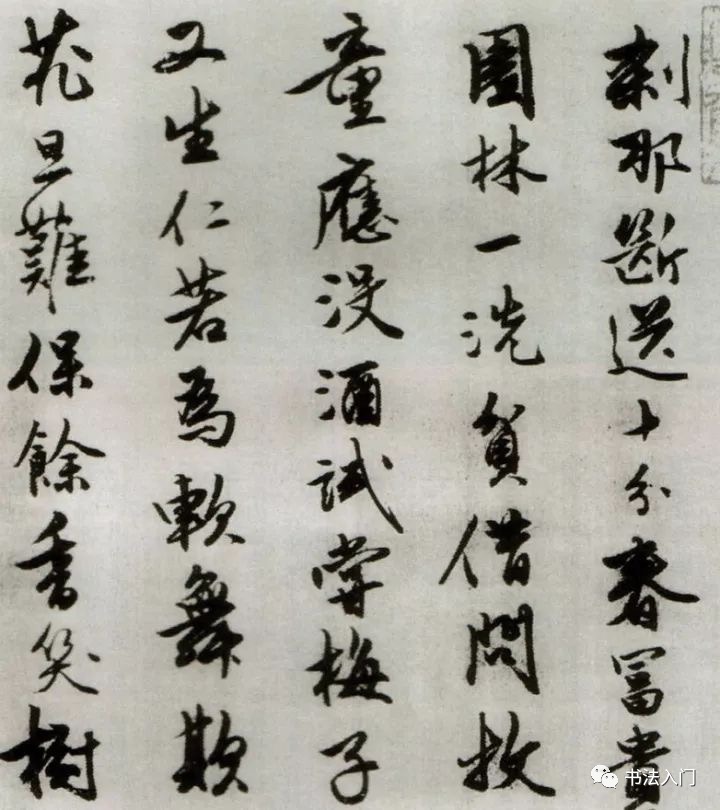 刹那斷送十分春冨貴
園林一洗貧借問牧
童應没酒試嘗梅子
又生仁若為軟舞欺
花旦難保餘香笑樹
书法入门